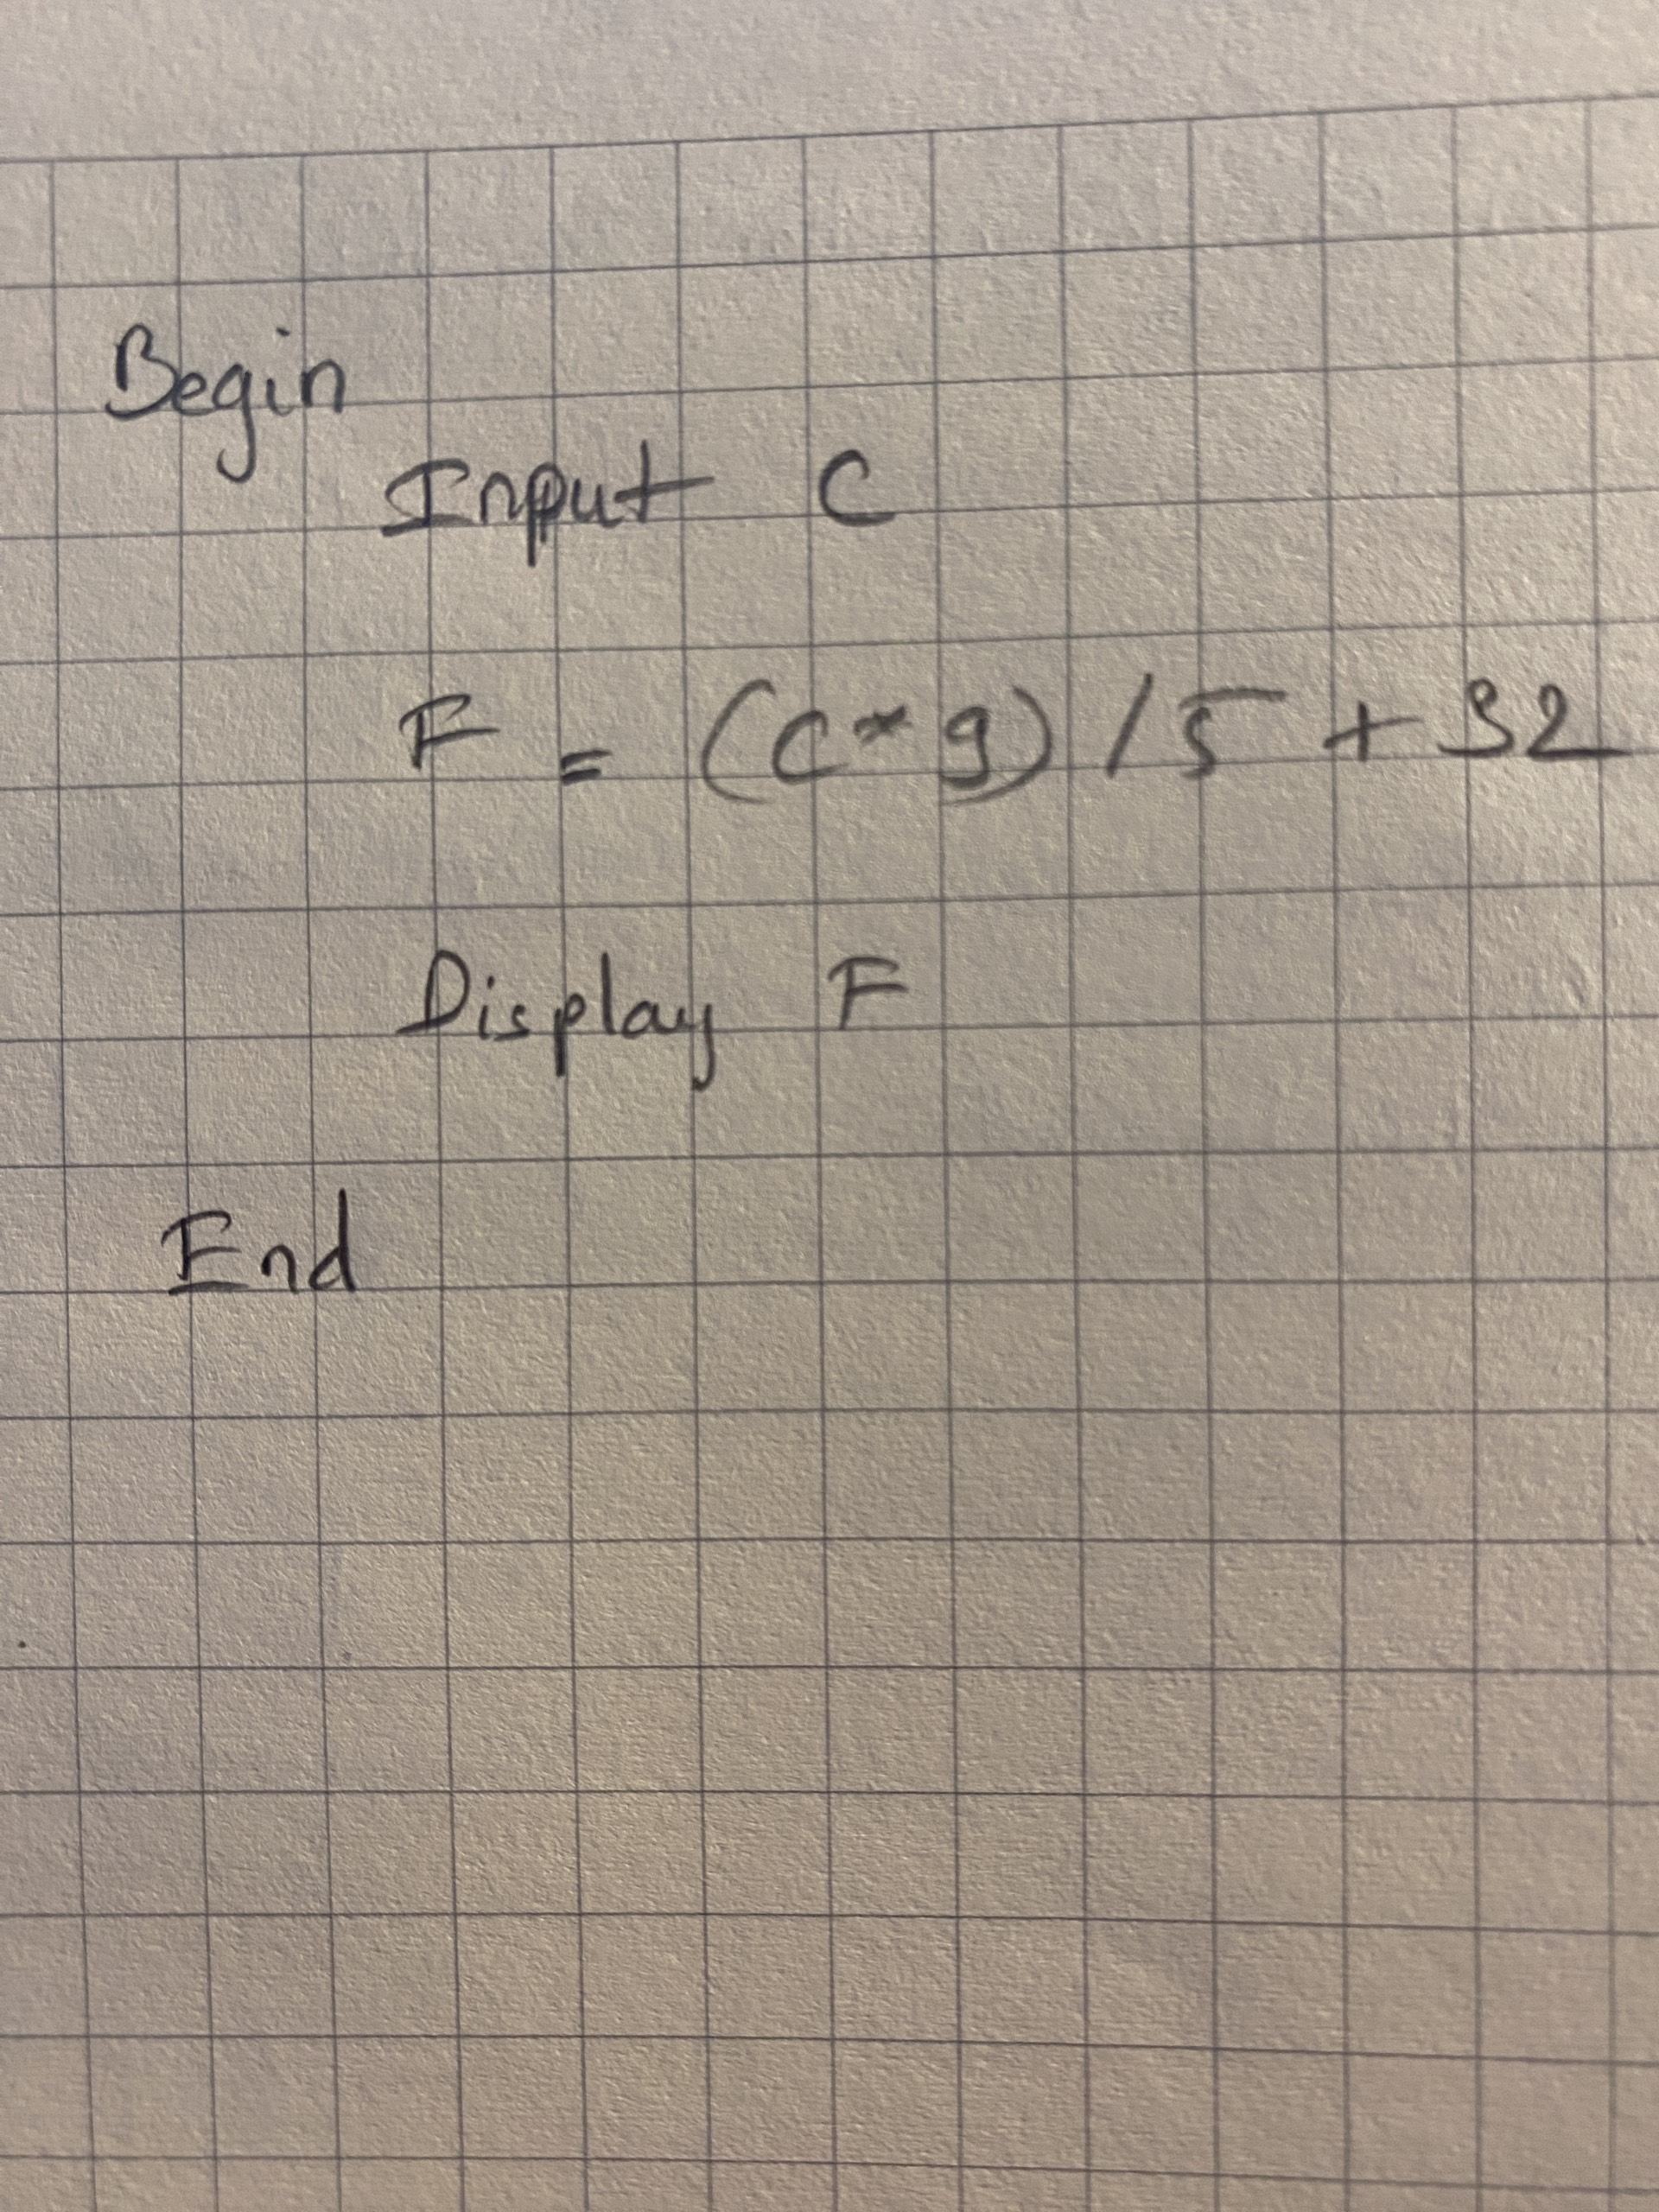 Begin
Input C
F = (C*9) / 5 + 32
Display F
End